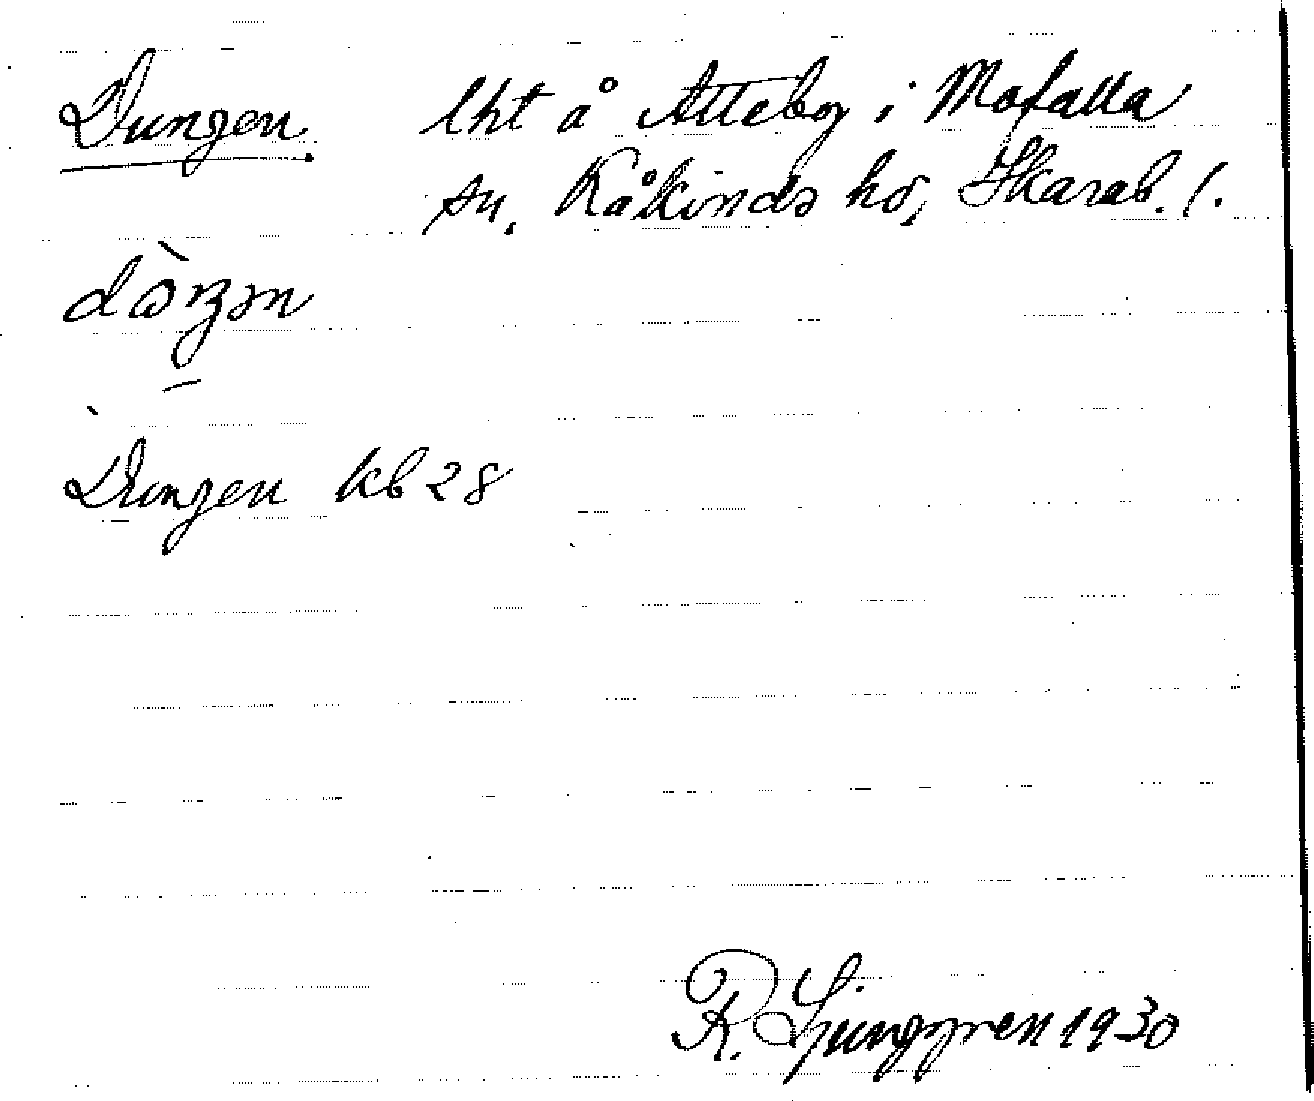 Dungen. lht å Atteby i Mofalla
sn, Kåkinds hd, Skarab. l.
Dungen kb 28
R. Ljunggren 1930